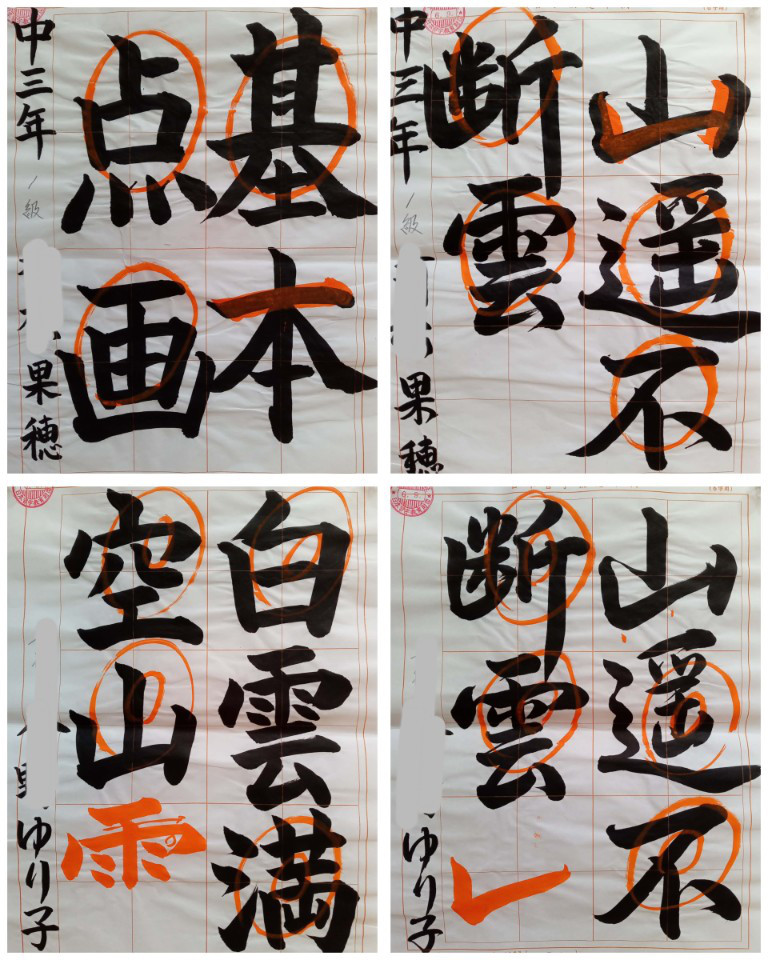 基本
点画
中三年 一級
果穂
山遥不
断雲
中三年 一級
果穂
白雲満
空山
雨
ゆり子
山遥不
断雲
ゆり子